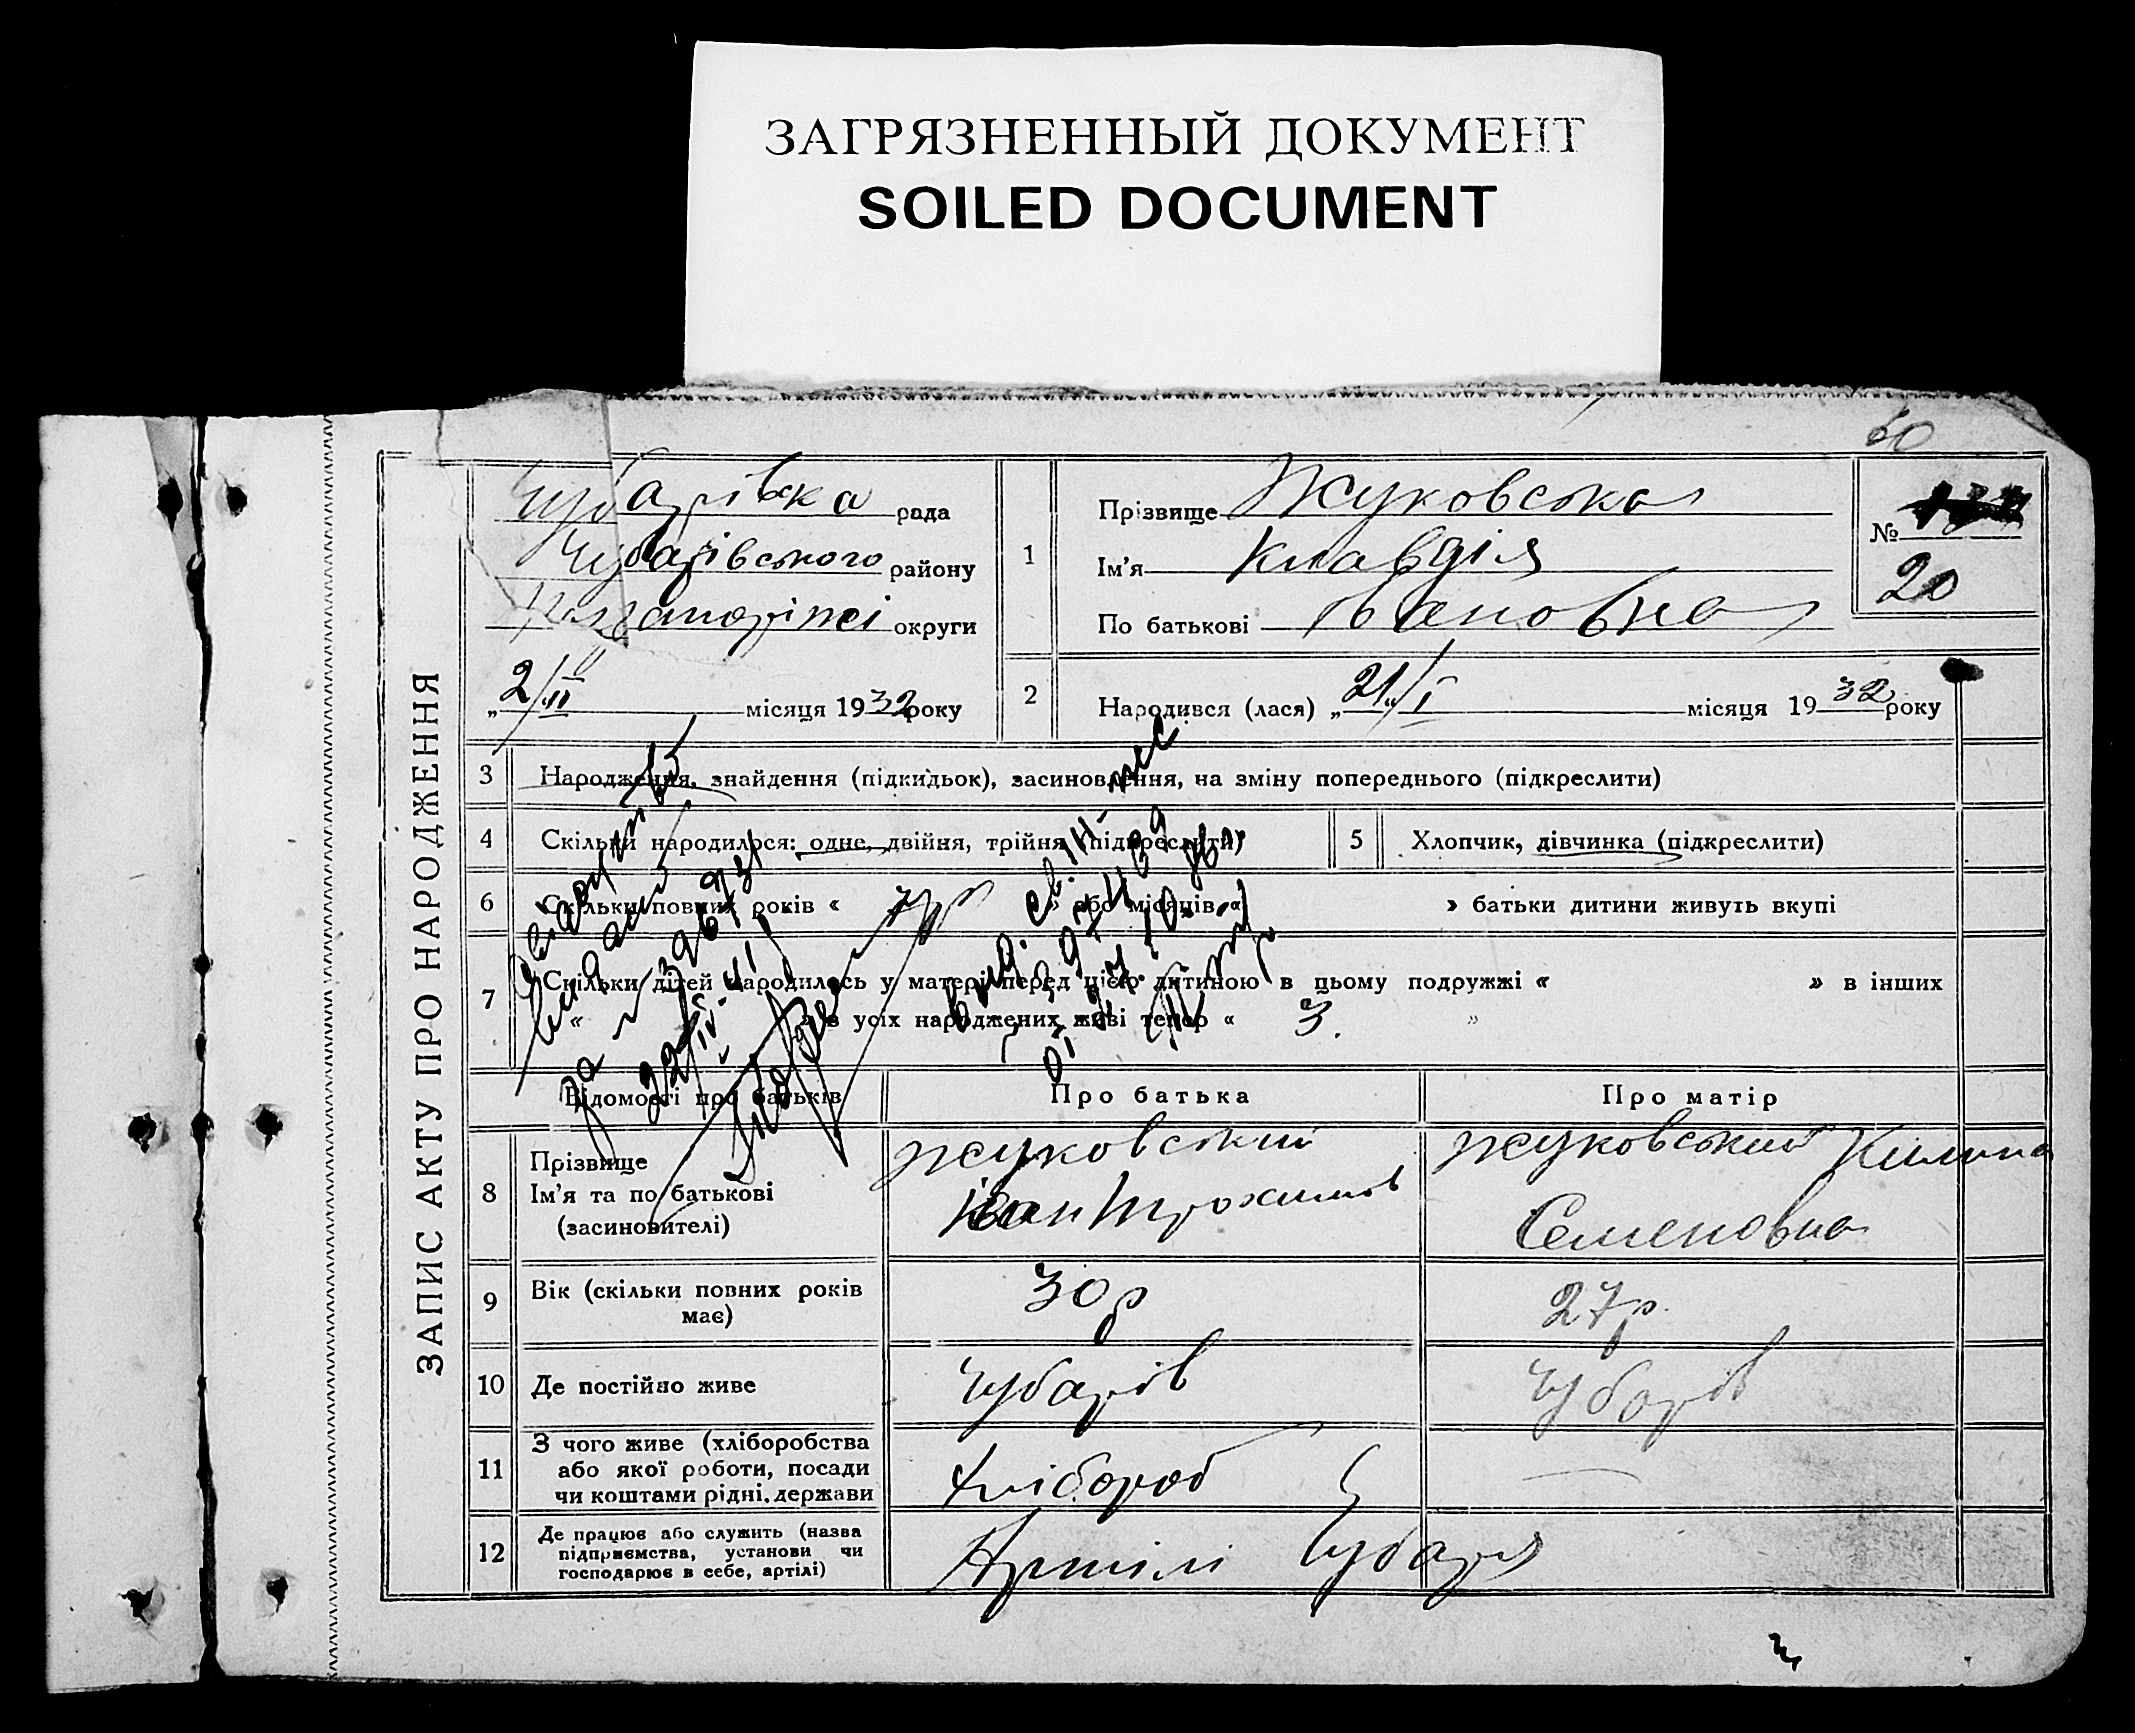 ЗАГРЯЗНЕННЫЙ ДОКУМЕНТ
SOILED DOCUMENT
60
ЗАПИС АКТУ ПРО НАРОДЖЕННЯ
Чубарівка рада
Чубарівського району
округи
„2/III місяця 1932 року
1
Прізвище Жуковська
Ім'я Клавдія
По батькові Івановна
№
20
2
Народився (лася) „21"/I місяця 1932 року
3 Народження, знайдення (підкидьок), засиновлення, на зміну попереднього (підкреслити)
4 Скільки народилося: одне, двійня, трійня (підкреслити)
5 Хлопчик, дівчинка (підкреслити)
6 Скільки повних років « 7 р » або місяців « » батьки дитини живуть вкупі
7 Скільки дітей народилось у матері перед цією дитиною в цьому подружжі « » в інших
« » в усіх народжених живі тепер « 3. »
Відомості про батьків
Про батька
Про матір
8 Прізвище
Ім'я та по батькові
(засиновителі)
Жуковський
Іван Трохимов
Жуковський Килина
Семеновна
9 Вік (скільки повних років
має)
30 р
27 р.
10 Де постійно живе
Чубарів
Чубарів
11 З чого живе (хліборобства
або якої роботи, посади
чи коштами рідні, держави
Хлібороб
—
12 Де працює або служить (назва
підприємства, установи чи
господарює в себе, артілі)
Артілі Чубаря